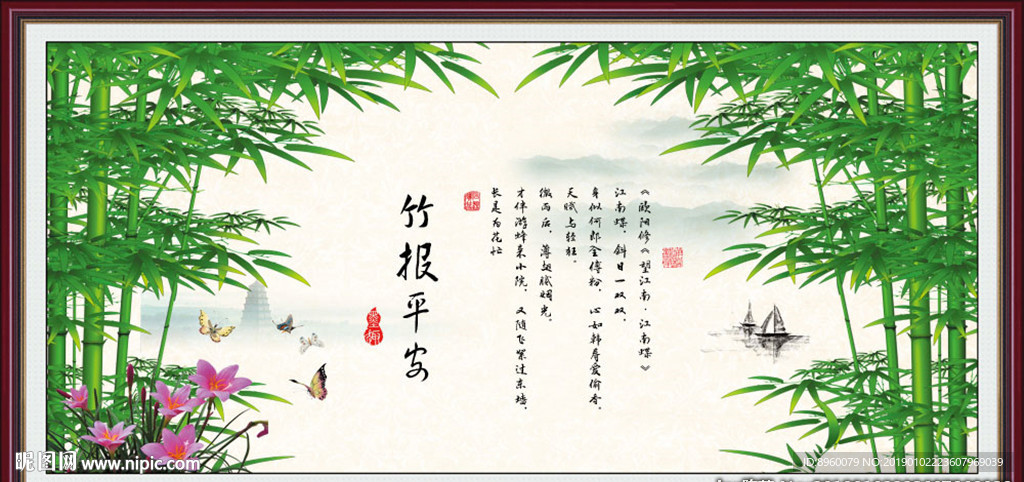 《欧阳修《望江南·江南蝶》
江南蝶，斜日一双双，
身似何郎全傅粉，心如韩寿爱偷香。
天赋与轻狂。
微雨后，薄翅腻烟光。
才伴游蜂来小院，又随飞絮过东墙，
长是为花忙
竹报平安
昵图网 www.nipic.com
ID:8960079 NO:20190102223607969039